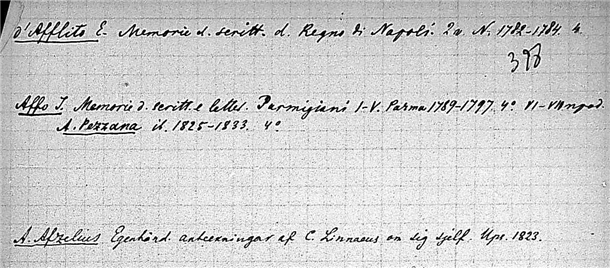 d'Afflito E. Memorie d. scritt. d. Regno di Napoli. 2 v. N. 1782-1784. 4.
398
Affo I. Memorie d. scritt. e letter. Parmigiani I-V. Parma 1789-1797. 4° VI-VII npod.
A. Pezzana it. 1825-1833. 4°
A. Afzelius Egenhänd. anteckningar af C. Linnaeus om sig sjelf. Ups. 1823.